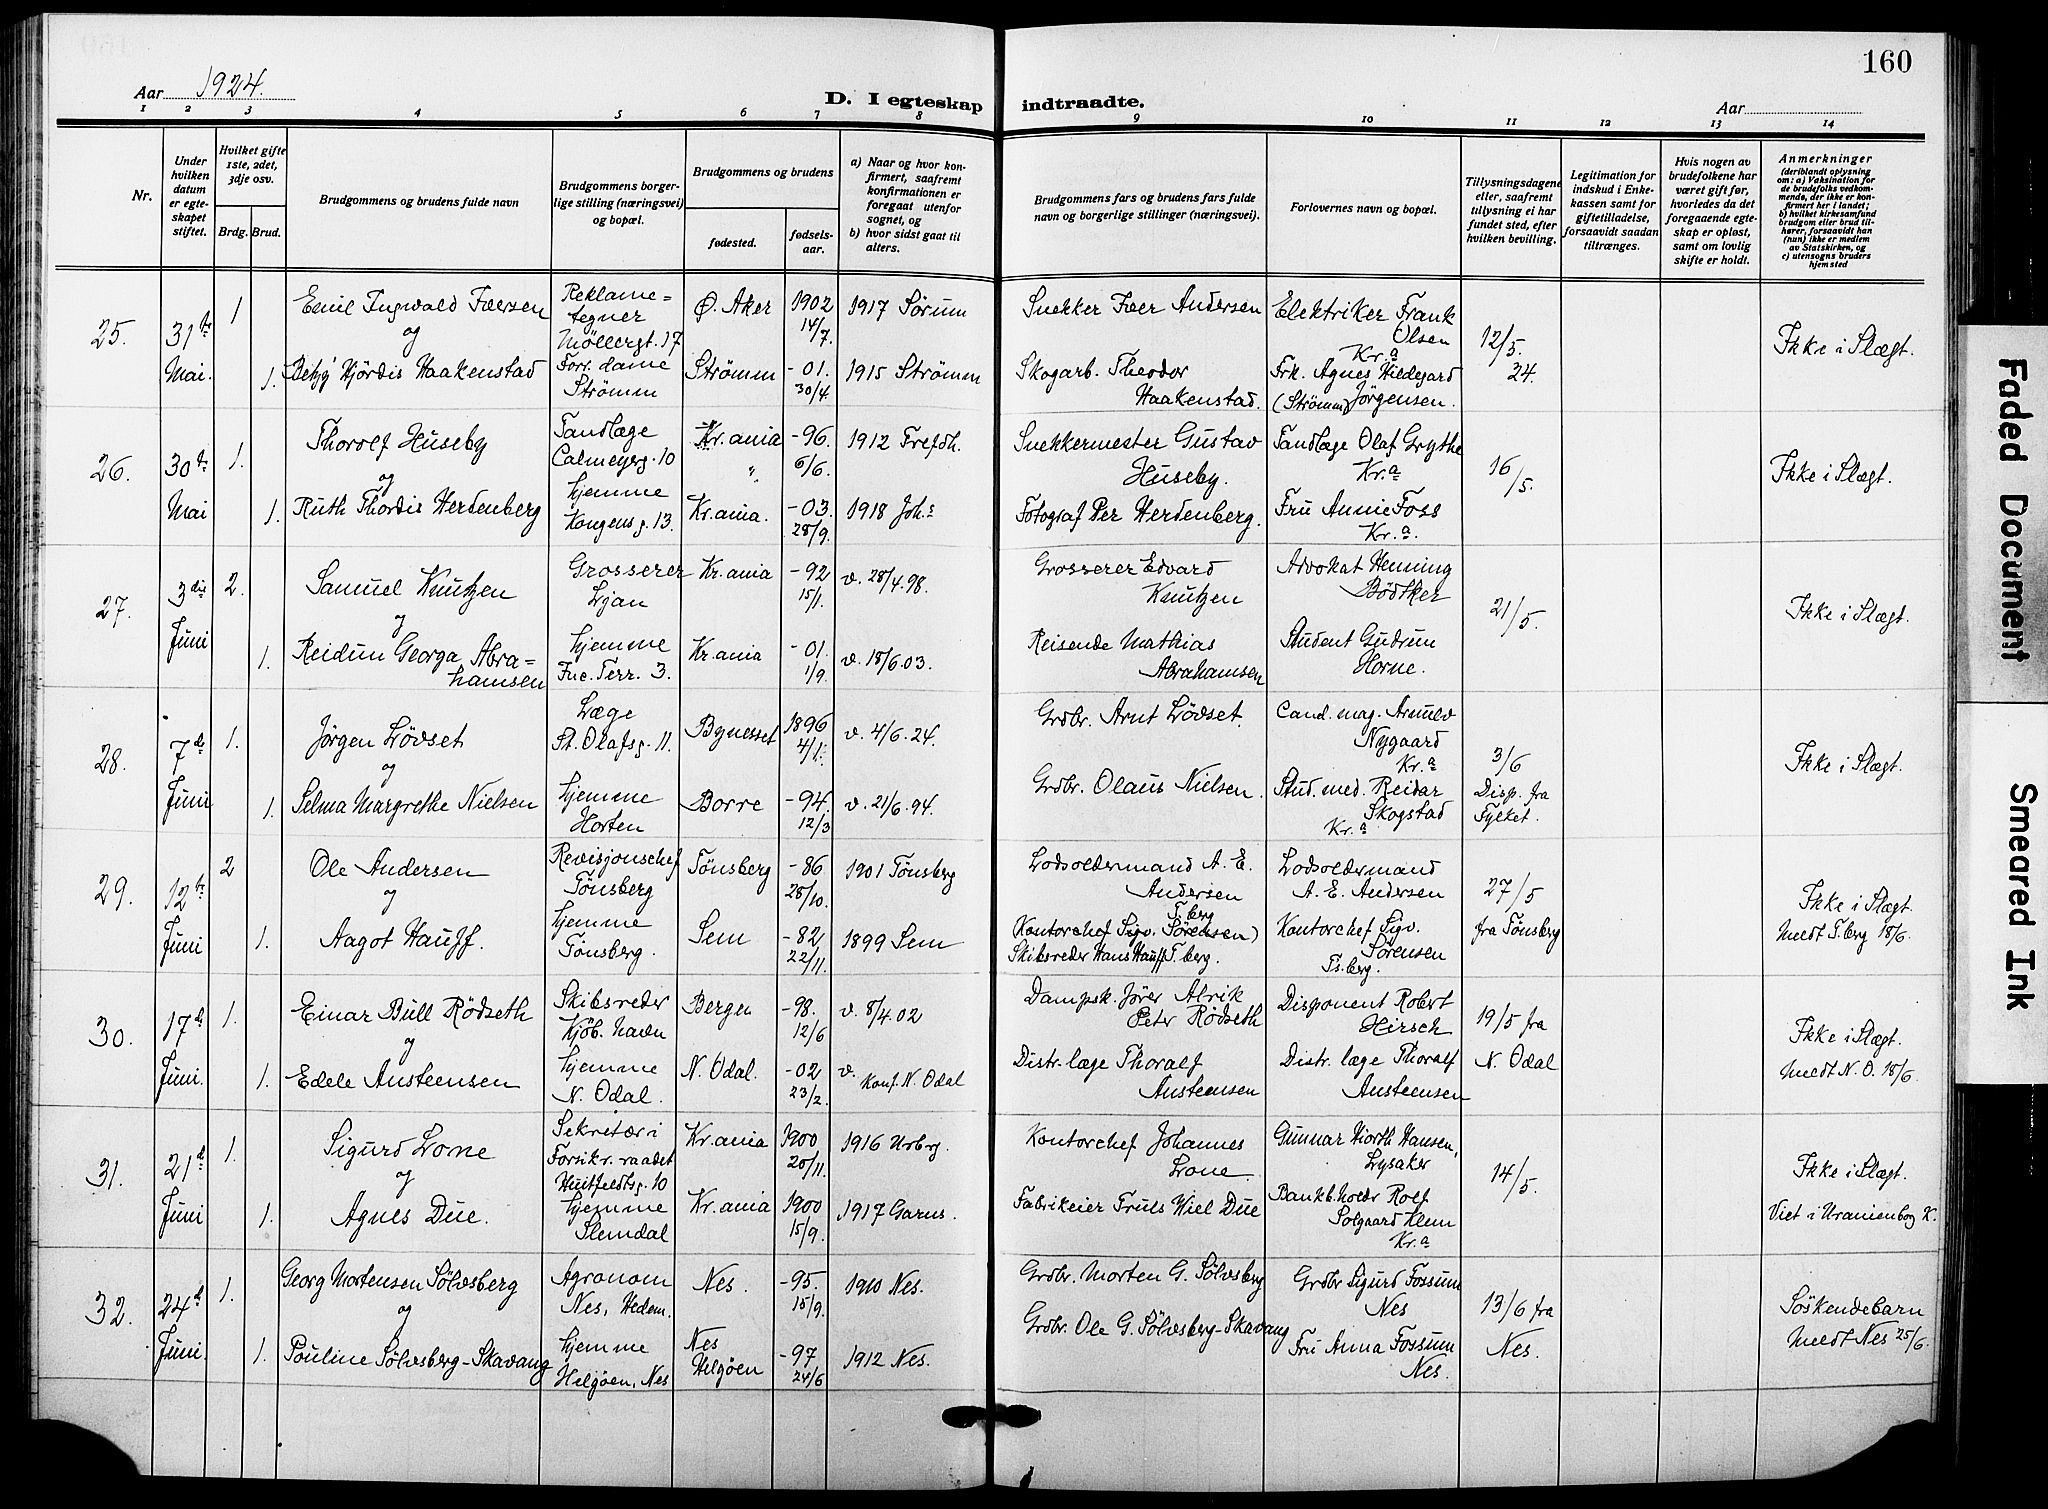 160
Aar 1924.
D. I egteskap indtraadte.
Aar
1 2 3 4 5 6 7 8 9 10 11 12 13 14
Nr.
Under hvilken datum er egteskapet stiftet.
Hvilket gifte 1ste, 2det, 3dje osv.
Brdg. Brud.
Brudgommens og brudens fulde navn
Brudgommens borgerlige stilling (næringsvei) og bopæl.
Brudgommens og brudens
fødested.
fødselsaar.
a) Naar og hvor konfirmert, saafremt konfirmationen er foregaat utenfor sognet, og
b) hvor sidst gaat til alters.
Brudgommens fars og brudens fars fulde navn og borgerlige stillinger (næringsvei).
Forlovernes navn og bopæl.
Tillysningsdagene eller, saafremt tillysning ei har fundet sted, efter hvilken bevilling.
Legitimation for indskud i Enkekassen samt for giftetilladelse, forsaavidt saadan tiltrænges.
Hvis nogen av brudefolkene har været gift før, hvorledes da det foregaaende egteskap er opløst, samt om lovlig skifte er holdt.
Anmerkninger (deriblandt oplysning om: a) Vaksination for de brudefolks vedkommende, der ikke er konfirmert her i landet; b) hvilket kirkesamfund brudgom eller brud tilhører, forsaavidt han (hun) ikke er medlem av Statskirken, og c) utensogns bruders hjemsted
25. 31te Mai. 1
Emil Ingwald Færsen
og
1. Betzy Hjördis Haakenstad
Reklametegner
Möllergt. 17
Forr. dame
Strömm
Ø. Aker 1902 14/7. 1917 Sørum
Strømm -01. 30/4. 1915 Strømm
Snekker Færr Andersen
Skogarb. Theodor Haakenstad.
Elektriker Frank Olsen
Kr.a
Frk. Agnes Hildegard
(Strømm) Jörgensen.
12/5. 24.
Ikke i Slægt.
26. 30te Mai 1.
Thorolf Huseby
og
1. Ruth Thordis Herdenberg
Tandlæge
Calmeyersg. 10
hjemme
Kongens g. 13.
Kr.ania -96. 6/6. 1912 Trefdh.
Kr.ania. -03. 28/9. 1918 Joh.s
Snekkermester Gustav Huseby.
Fotograf Per Herdenberg.
Tandlæge Olaf Grythe
Kr.a
Fru Annie Foss
Kr.a.
16/5.
Ikke i Slægt.
27. 3die Juni 2.
Samuel Knutzen
og
1. Reidun Georga Abrahamsen
Grosserer
Ljan
hjemme
Inc. Terr. 3.
Kr.ania -92 15/1. v. 28/4. 98.
Kr.ania -01. 1/9. v. 18/6. 03.
Grosserer Edvard Knutzen
Reisende Mathias Abrahamsen
Advokat Henning Bödtker
Student Gudrun Horne.
21/5.
Ikke i Slægt.
28. 7de Juni 1.
Jörgen Lövset
og
1. Selma Margrethe Nielsen
Læge
St. Olafsg. 11.
hjemme
Horten
Bynesset 1896 4/1. v. 4/6. 24.
Borre -94. 12/3 v. 21/6. 94.
Grdbr. Arnt Lövset.
Grdbr. Olaus Nielsen.
Cand. mag. Arnulv Nygaard
Kr.a
Stud. med. Reidar Skogstad
Kr.a
3/6
Disp. fra
Fylket.
Ikke i Slægt.
29. 12te Juni 2
Ole Andersen
og
1. Aagot Hauff.
Revisjonschef
Tönsberg
hjemme
Tönsberg.
Tönsberg -86 28/10. 1901 Tönsberg
Sem -82 22/11. 1899 Sem
Lodsoldermand A. E. Andersen
T. berg
Kontorchef Sigv. Sörensen)
Skibsreder Hans Hauff T. berg.
Lodsoldermand
A. E. Andersen
Kontorchef Sigv. Sörensen
Ts. berg.
27/5
fra Tønsberg
Ikke i Slægt.
Meldt T.berg 18/6.
30. 17de Juni. 1.
Einar Bull Rödseth
og
1. Edele Austeensen
Skibsreder
Kjöb. havn
hjemme
N. Odal.
Bergen -98. 12/6 v. 8/4. 02
N. Odal. -02 23/2. v. Konf. N. Odal
Dampsk. förer Alrik Peter Rødseth
Distr. læge Thoralf Austeensen
Disponent Robert Hirsch
Distr. læge Thoralf Austeensen
19/5 fra
N. Odal
Ikke i Slægt.
Meldt N. O. 18/6.
31. 21de Juni 1.
Sigurd Lorne
og
1. Agnes Due.
Sekretær i
Forsikr. raadet
Huitfeldtsg. 10
hjemme
Slemdal
Kr.ania 1900 20/11. 1916 Urbrg.
Kr.ania 1900 15/9. 1917 Garns.
Kontorchef Johannes Lone
Fabrikeier Truls Wiel Due
Gunnar Hiorth Hansen,
Lysaker
Bankb.holdr Rolf
Solgaard Klem
Kr.a
14/5.
Ikke i Slægt.
Viet i Uranienborg K.
32. 24de Juni. 1.
Georg Mortensen Sölvsberg
og
1. Pouline Sölvsberg-Skavang
Agronom
Nes, Hedem.
hjemme
Helgöen, Nes
Nes. -95. 15/9. 1910 Nes.
Nes Helgöen -97 24/6 1912 Nes.
Grdbr. Morten G. Sölvsberg
Grdbr. Ole G. Sölvsberg-Skavang
Grdbr Sigurd Fossum
Nes
Fru Anna Fossum
Nes.
13/6 fra
Nes.
Söskendebarn
Meldt Nes 25/6.
Faded Document
Smeared Ink